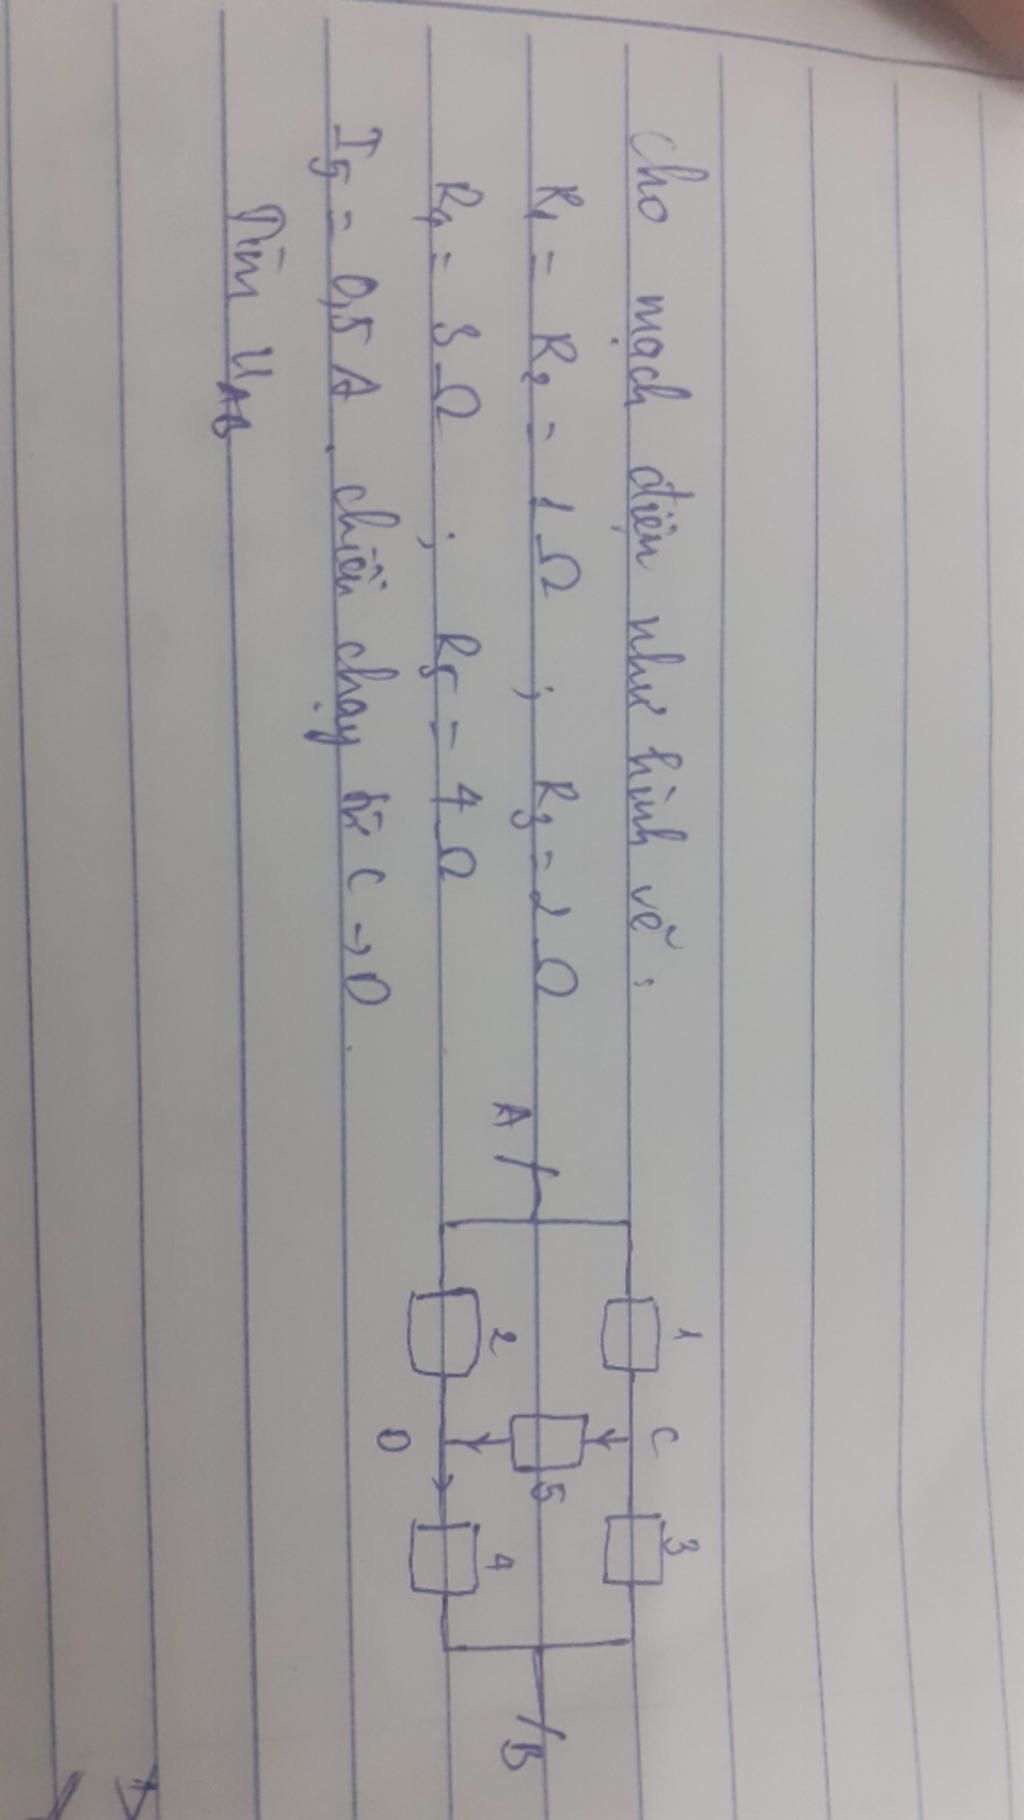 Cho mạch điện như hình vẽ :
R1 = R2 = 1 Ω ; R3 = 2 Ω
R4 = 3 Ω ; R5 = 4 Ω
I5 = 0,5 A . chiều chạy từ C → D .
Tìm UAB
1 C 3
A 5 B
2 D 4